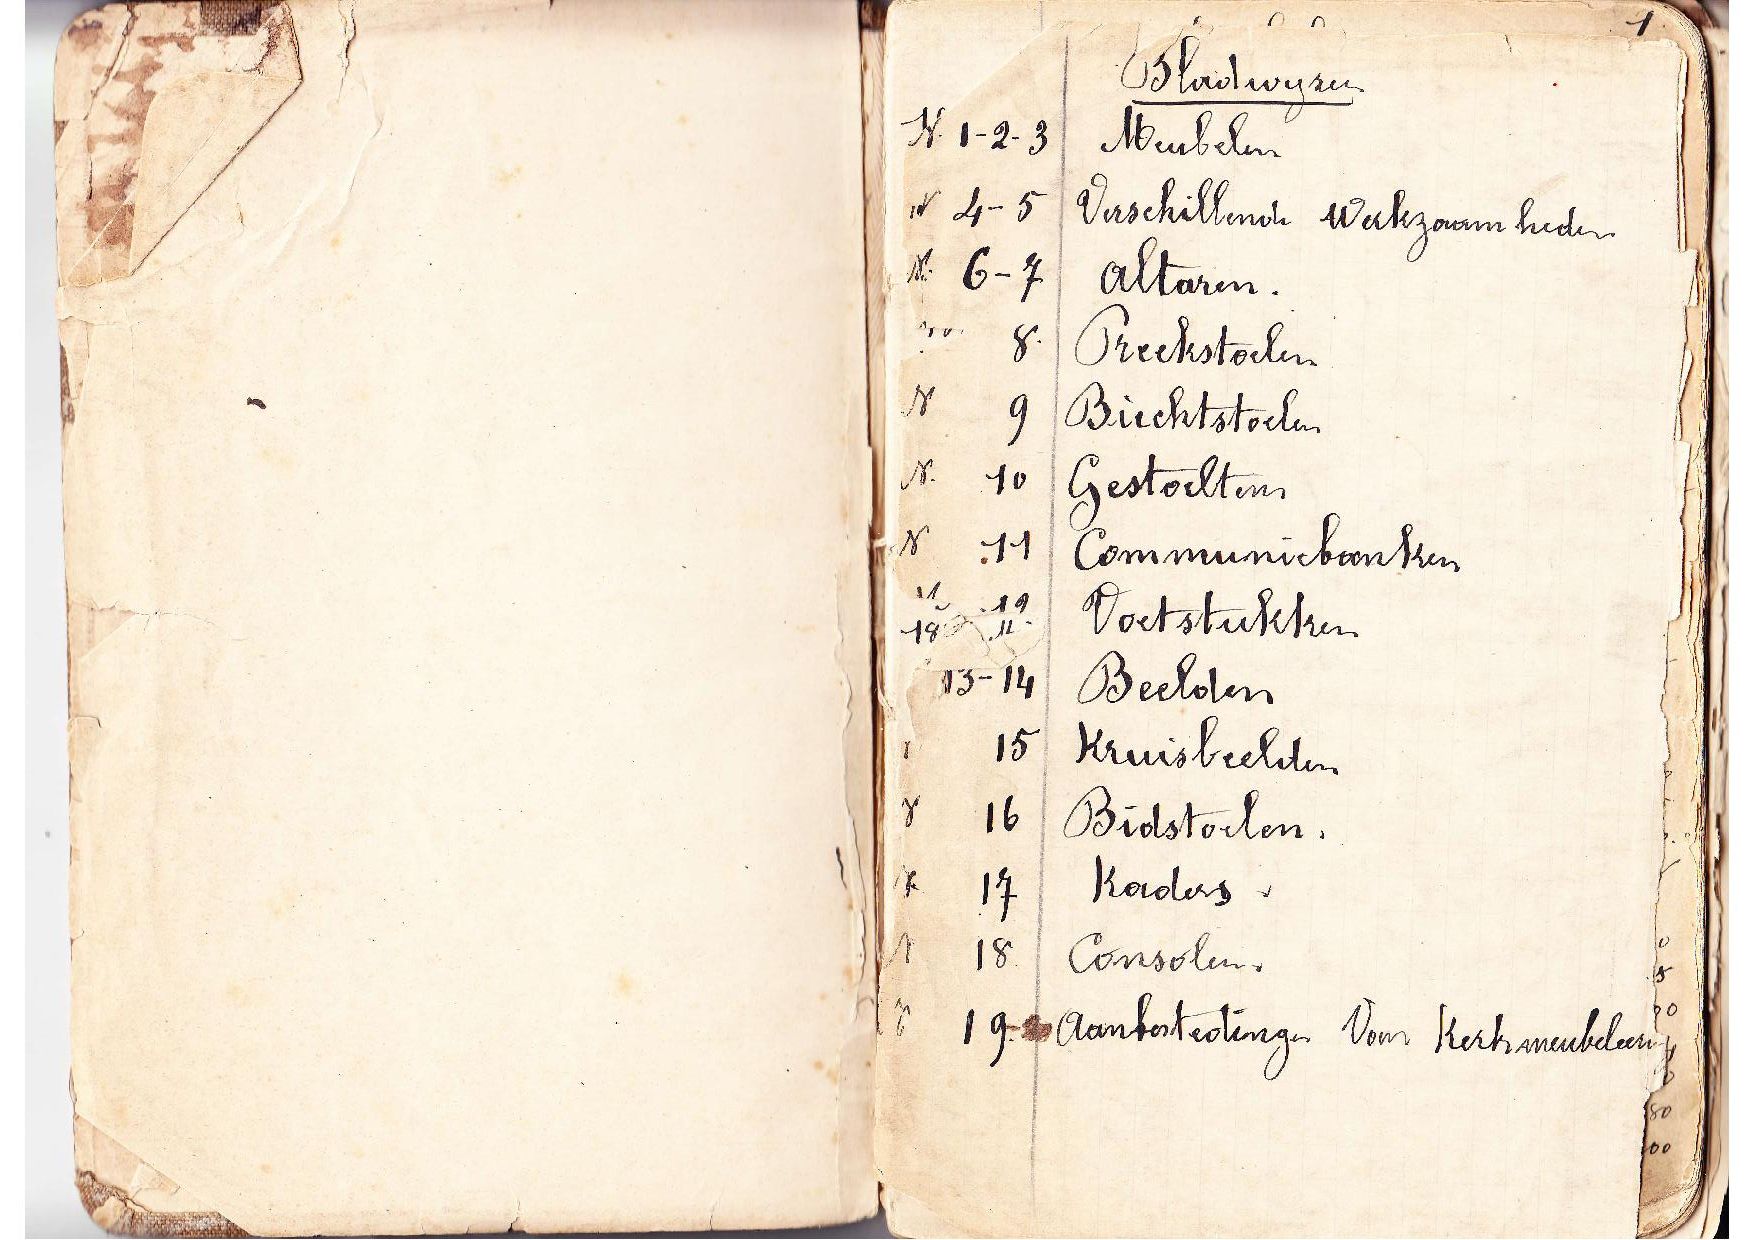 1
Bladwyzer
N. 1-2-3 Meubelen
N 4-5 Verschillende Werkzaamheden
N. 6-7 Altaren.
No. 8. Preekstoelen
N 9 Biechtstoelen
N. 10 Gestoelten
N 11 Communiebanken
Voetstukken
18
13-14 Beelden
15 Kruisbeelden
N 16 Bidstoelen.
N 17 Kaders
N 18 Consolen.
N 19- Aanbestedingen Voor Kerkmeubeleering
80
00